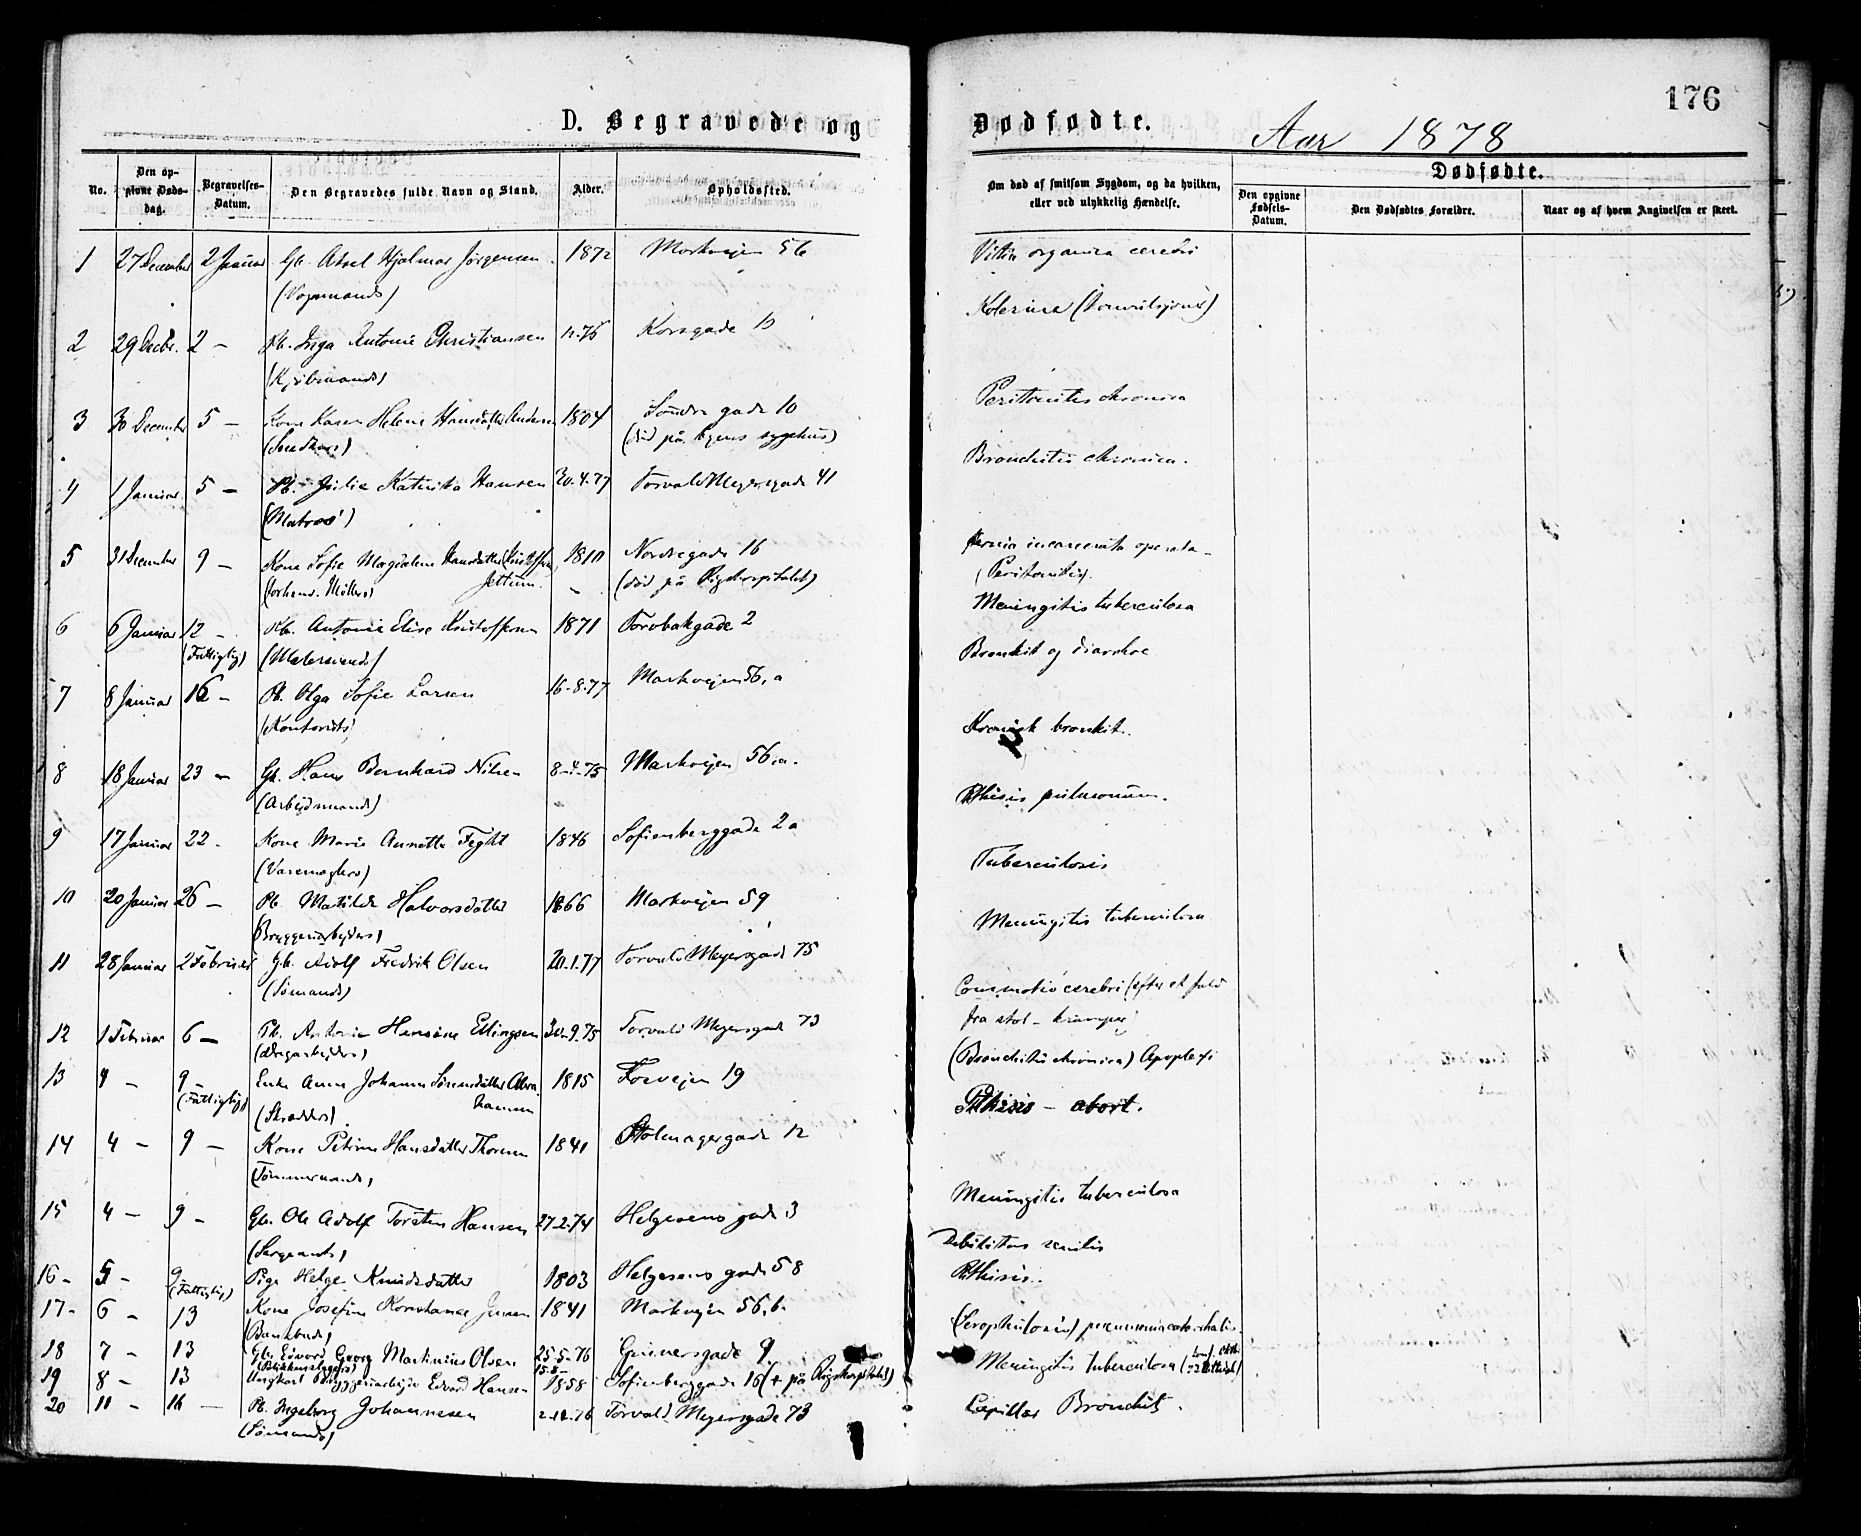 176
D. Begravede og Dødfødte. Aar 1878
No.
Den opgivne Dødsdag.
Begravelses-Datum.
Den Begravedes fulde Navn og Stand.
Alder.
Opholdssted.
Om død af smitsom Sygdom, og da hvilken, eller ved ulykkelig Hændelse.
Dødfødte.
Den opgivne Fødsels-Datum.
Den Dødfødtes Forældre.
Naar og af hvem Angivelsen er skeet.
1 27 December 2 Januar Gb. Axel Hjalmar Jørgensen 1872 Markvejen 56 Vitia organica cerebri
(Vognmands)
2 29 Decbr. 2 — Pb. Inga Antonie Christiansen 11.76 Korsgade 10 Kolerina
(Kjøbmands)
3 30 December 5 — Kone Karen Helene Hansdatter Andersen 1804 Søndre gade 10 Peritonitis chronica
(Snedkers) (død på byens sygehus)
4 1 Januar 5 — Pb. Julie Katinka Hansen 20.4.77 Torvald Meyersgade 41 Bronchitis chronica.
(Matros')
5 31 December 9 — Kone Sofie Magdalene Hansdatter 1810 Nordregade 16 Hernia incarcerata operata —
(forhenv. Møllers) (død på Rigshospitalet) (Peritonitis).
6 6 Januar 12 — Pb. Antonie Elise Kristoffersen 1871 Torvbakgade 2 Meningitis tuberculosa
(Fattiglig) (Malersvends)
7 8 Januar 16 — Pb. Olga Sofie Larsen 16-8-77 Markvejen 56, a Bronkit og diarrhoe
(Kontorists)
8 18 Januar 23 — Gb. Hans Bernhard Nilsen 8-4-75 Markvejen 56, a. Kronisk bronkit.
(Arbejdsmands)
9 17 Januar 22 - Kone Marie Annette Feght 1846 Sofienberggade 2a Phthisis pulmonum.
(Varemæglers)
10 20 Januar 26 — Pb. Matilde Halvorsdatter 1866 Markvejen 59 Tuberculosis
(Bryggeriarbejders)
11 28 Januar 2 Februar Gb. Adolf Fredrik Olsen 20.1.77 Torvald Meyersgade 75 Meningitis tuberculosa
(Sømands)
12 1 Februar 6 — Pb. Antonie Hansine Ellingsen 30-9.75 Torvald Meyersgade 73 Commotio cerebri (efter et fald
fra stol – kramper)
13 4 — 9 — Enke Anne Johanne Sørensdatter Abra- 1815 Fosvejen 19 (Bronchitis chronica) Apoplexi
(Fattiglig) (Skrædders) hamsen
14 4 — 9 — Kone Petrine Hansdatter Thoresen 1841 Stolmagergade 12 Phthisis — abort.
(Tømmermands)
15 4 — 9 — Gb. Ole Adolf Torsten Hansen 27.2.74 Helgesens gade 3 Meningitis tuberculosa
(Sergeants)
16 - 5 — 9 — Pige Helge Knudsdatter 1803 Helgesens gade 58 Debilitas senilis
(Fattiglig)
17 - 6 — 13 Kone Josefine Konstance Jensen 1841 Markvejen 56, b. Phthisis.
18 7 — 13 Gb. Edvard Georg Martinius Olsen 25-5-76 Grünersgade 9 (Scrophulosis) pneumonia catarrhalis.
(Blikkenslagers)
19 8 — 13 Ungkarl Bryggeriarbejder Edvard Hansen 1858 Sofienberggade 16 (+ på Rigshospitalet) Meningitis tuberculosa
20 11 — 16 — Pb. Ingeborg Johannesen 2-12-76 Torvald Meyersgade 73 Capillær Bronchit.
(Sømands)